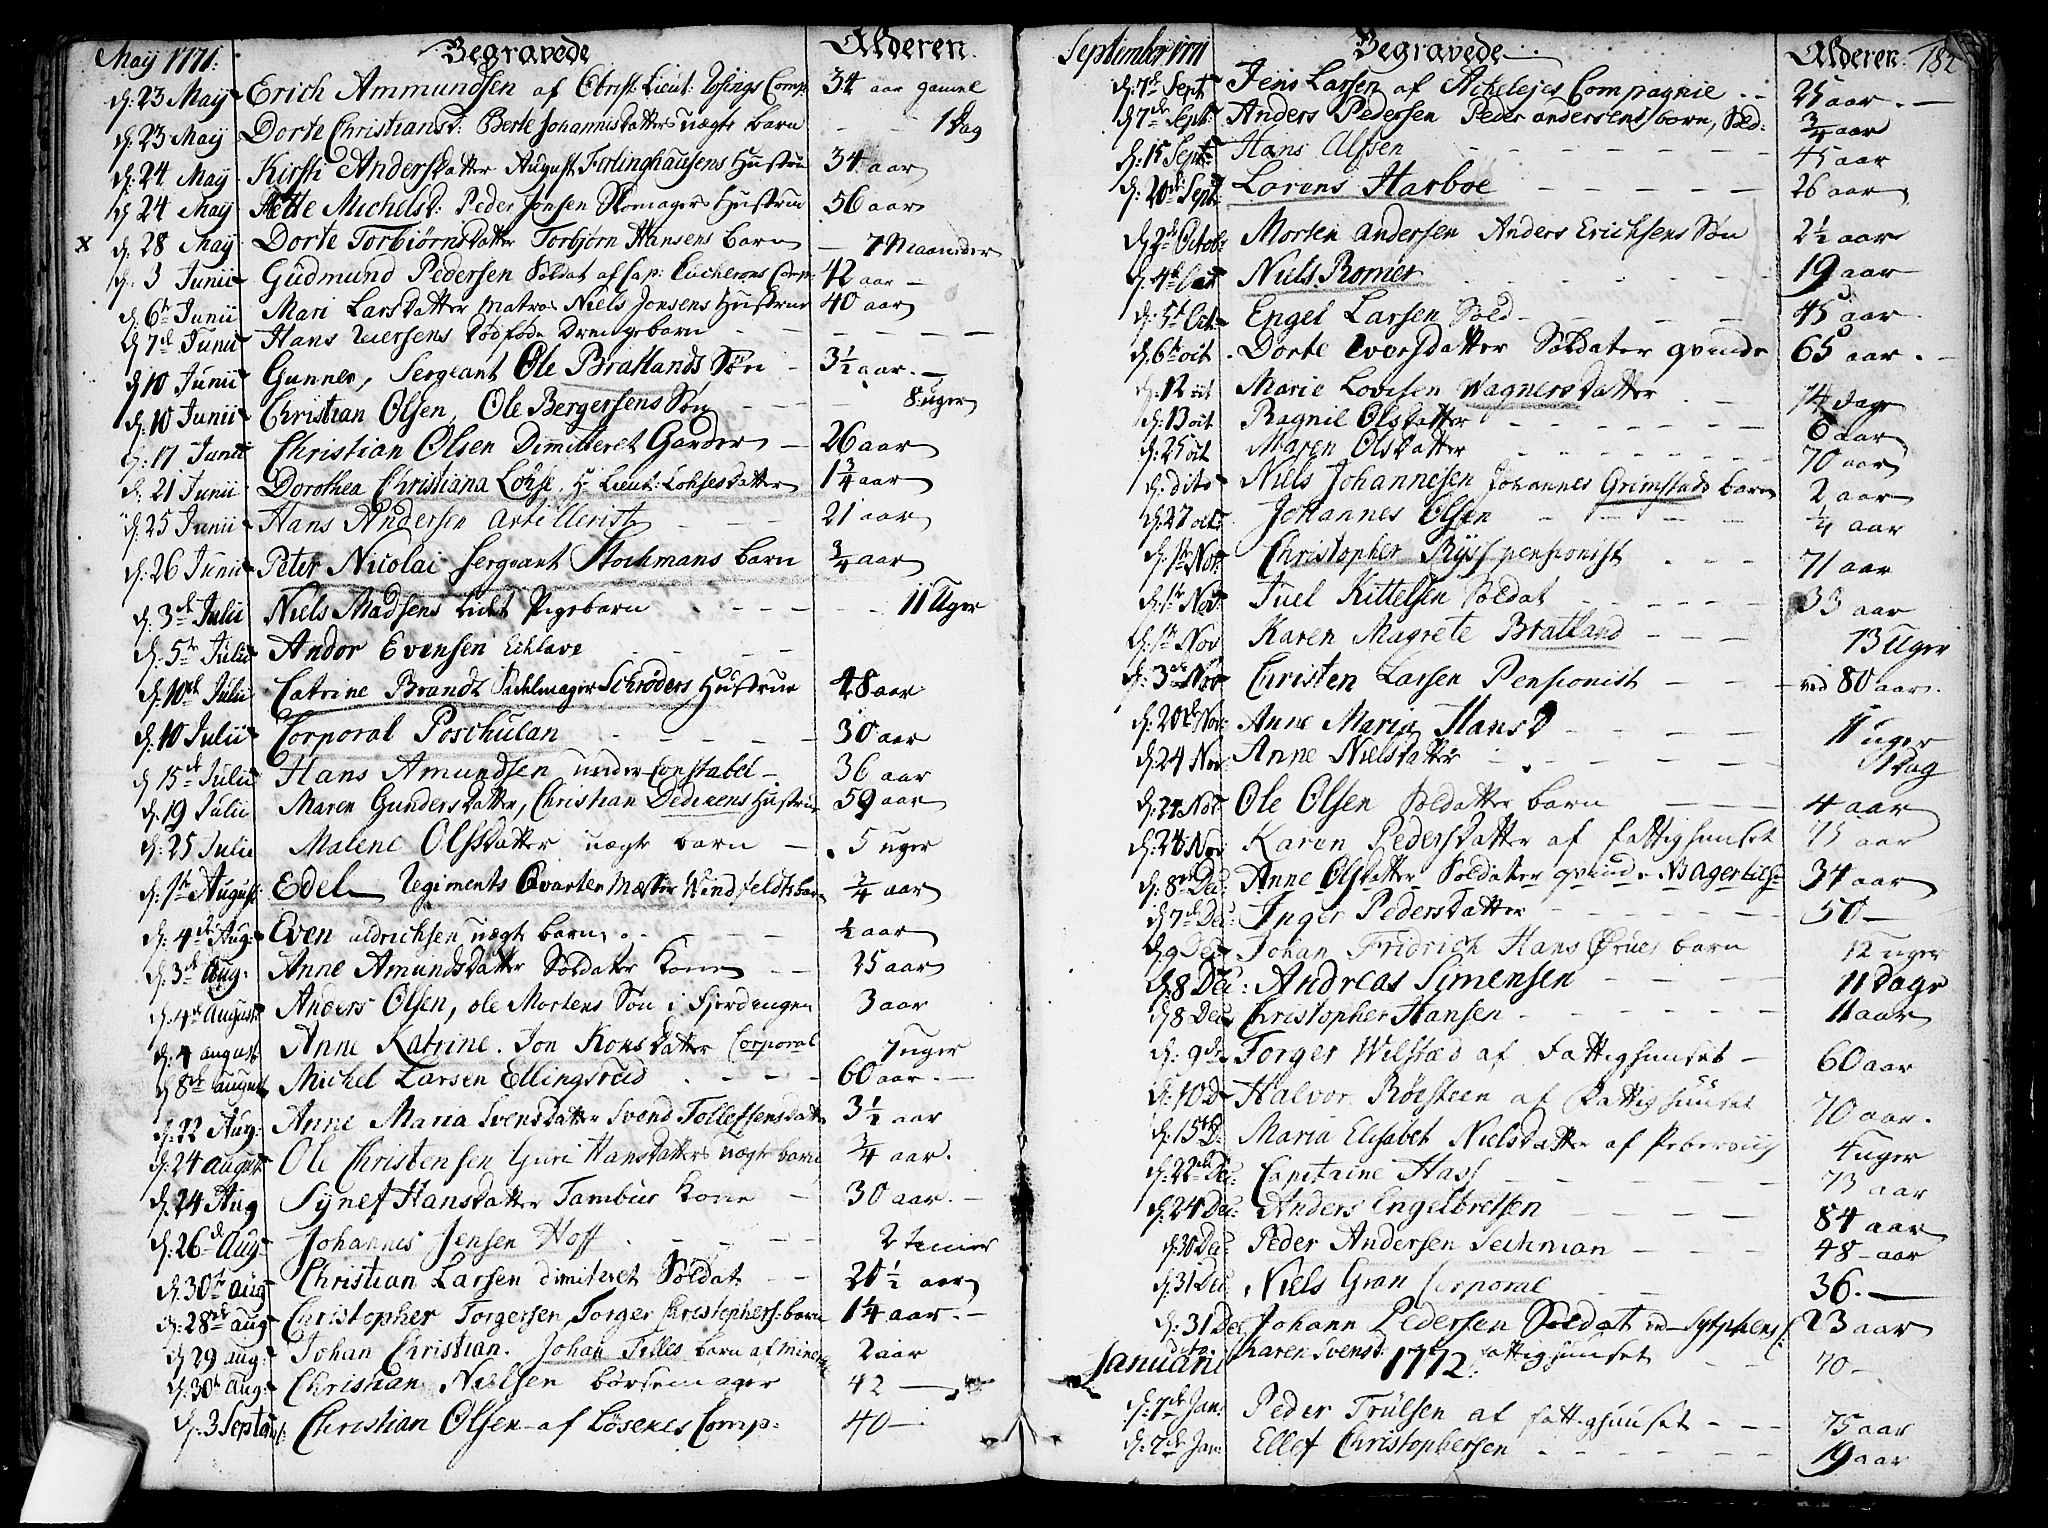 May 1771. Begravede Alderen.
d: 23 May Erich Ammundsen af Obrst: Lieut: Comp: 34 aar gamel
d: 23 May Dorte Christiansd: Berte Johannisdatters uægte barn - - 1 dag
d: 24 May Kirsti Andersdatter August Ferlinghausens Hustrue 34 aar
d: 24 May Mette Michelsd: Peder Jonsen Skomagers Hustrue 56 aar
x d: 28 May Dorte Torbiørnsdatter Torbjørn Hansens barn - 7 Maaneder
d: 3 Junii Gudmund Pedersen Soldat af Cap: Comp: 42 aar -
d: 6te Junii Mari Larsdatter matros Niels Jonsens Hustrue 40 aar
d: 7de Junii Hans Iversens dødføde Drengebarn - - - - - -
d: 10 Junii Gunner, Sergeant Ole Bratlands Søn - 3½ aar. -
d: 10 Junii Christian Olsen, Ole Bergersens Søn - - - 8 uger
d: 17 Junii Christian Olsen Dimitteret Garder - 26 aar
d: 21 Junii Dorothea Christiana Lohse, Hr Lieut: Lohses datter 1¾ aar
d: 25 Junii Hans Andersen Artillerist - - - 21 aar
d: 26 Junii Peter Nicolai Sergeant Stochmans barn ¾ aar
d: 3de Julii Niels Madsens lidet Pigebarn - - - - - 11 Uger
d: 5te Julii Andor Evensen Echlave - - - -
d: 10de Julii Catrine Brandt Sadelmager Schrøders Hustrue 48 aar
d: 10 Julii Corporal Poschulan - - - - 30 aar
d: 15de Julii Hans Amundsen under Constabel - 36 aar
d: 19 Julii Maren Gundersdatter, Christian Dedekens Hustrue 59 aar
d: 25 Julii Malene Olssdatter uægte barn - 5 uger
d: 1te August: Edel Regiments Qvarteer Mæster Windfeldts barn ¾ aar
d: 4de Aug: Even uldrichsen uægte barn - - - ½ aar
d: 3de Aug. Anne Amundsdatter Soldater Kone - - 25 aar
d: 4de August Anders Olsen, ole Mortens Søn i Fjerdengen 3 aar
d: 4 august Anne Katrine. Jon Koksdatter Corporal 7 uger
d: 8de august Michel Larsen Ellingsrud - - - - 60 aar. -
d: 22 Aug: Anne Maria Svensdatter Svend Tollefsens datter 3½ aar
d: 24 august Ole Christensen Guri Hansdatters uægte barn ¾ aar.
d: 24 Aug Synef Hansdatter Tambur Kone - 30 aar. -
d: 26de Aug: Johannes Jensen Hoff - - - - 2 timer
d: 30te aug Christian Larsen dimiteret Soldat - - 20½ aar
d: 28de aug Christopher Torgersen, Torger Christophers: barn 1¼ aar. -
d: 29 aug: Johan Christian. Johan Filles barn af 2 aar
d: 30te aug: Christian Nielsen børsemager 42 -
d: 3 Septemb: Christian Olsen af Løsenes Comp: 40 -
September 1771 Begravede Alderen. 182
d: 7de Sept Jens Larsen af Achelejes Compagnie - - 25 aar. -
d: 7de Sept: Anders Pedersen Peder andersens barn, Sold: ¾ aar
d: 15 Sept: Hans Olssen - - - - - - - 45 aar
d: 20de Sept: Lorens Harboe - - - - - 26 aar
d: 2de Octob: Morten andersen Anders Erichsens Søn 2½ aar
d: 4de Oct Niels Romer - - - - - 19 aar
d: 5te Oct: Engel Larsen Sold - - - - - 45 aar
d: 6te oct Dorte Iversdatter Soldater qvinde 65 aar. -
d: 12 oct Marie Lovisen Wagners datter - - 14 dage
d: 13 oct Ragnil Olsdatter - - - - - - 6 aar
d: 25 oct Maren Olsdatter - - - - - - 70 aar
d: dito Niels Johannesen Johannes Grimstads barn 2 aar
d: 27 oct Johannes Olsen - - - - ¼ aar
d: 1te Nov: Christopher Ryss pensionist - - - 71 aar
d: 1te Nov: Juel Kittelsen Soldat - - - - - 33 aar
d: 1te Nov Karen Magrete Bratland - - - 13 Uger
d: 3de Nov Christen Larsen Pensionist - - - ved 80 aar.
d: 20de Nov: Anne Maria Hansd - - - - 11 uger
d: 24 Nov: Anne Nielsdatter - - - - - 1 dag
d: 24 Nov: Ole Olsen Soldatter barn - - - 4 aar
d: 28 Nov Karen Pedersdatter af fattighuuset 75 aar
d: 8de Dec: Anne Olsdatter Soldater qvinde 34 aar
d: 7de Dec: Inger Pedersdatter - - - - - - 50 -
d: 9 Dec Johan Fridrich Hans Ørues barn 12 uger
d: 8 Dec: Andreas Simensen - - - - 11 Dage
d: 8 Dec Christopher Hansen - - - - - 11 aar
d: 9de Torger Wilstæd af Fattighuuset - 60 aar
d: 10 D Halvor Røesteen af Fattighuuset 70 aar.
d: 15de D. Maria Elisabet Nielsdatter af Pebervig 4 uger
d: 22de Dec: Capitaine Hass - - - - - 73 aar
d: 24 Dec: Anders Engelbretsen - - - - - 84 aar
d: 30 Dec: Peder Andersen Sechman - - - 48 aar
d: 31 Dec Niels Gran Corporal - - - 36. -
d: 31 Dec Johann Pedersen Soldat 23 aar
dito. Karen Svensd: fattighuuset - - 70 -
Januarii 1772.
d: 7de Jan: Peder Trulsen af fattighuuset - - - 75 aar
d: 7de Jan: Ellef Christophersen - - - - - 19 aar